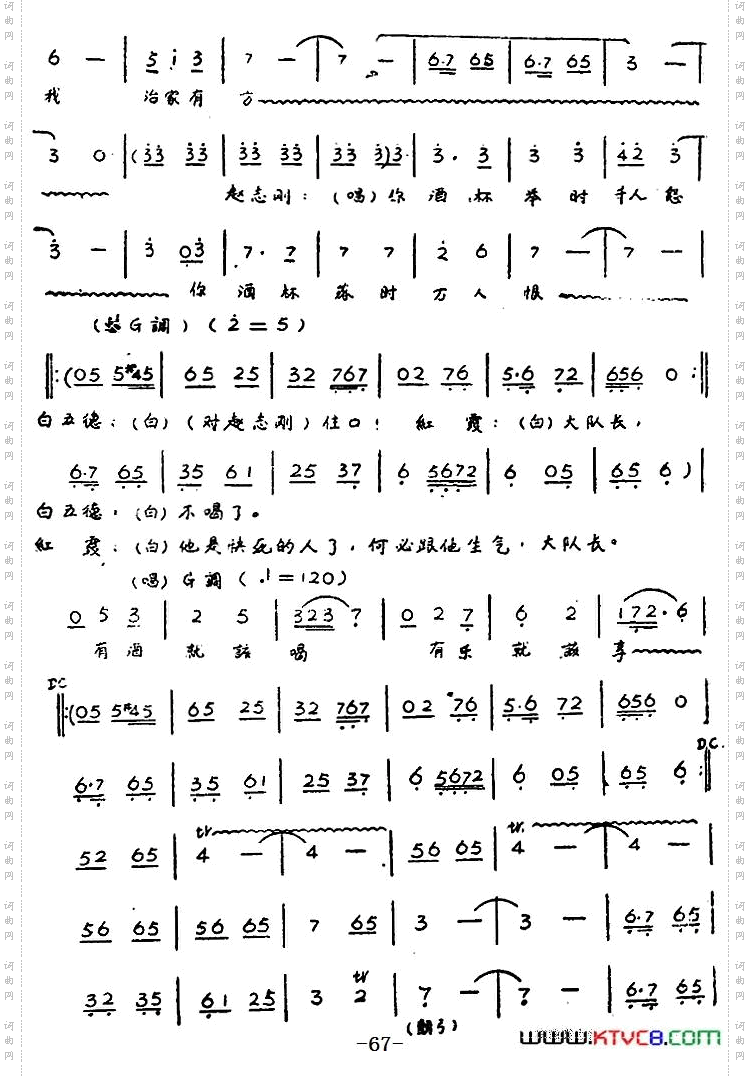 6 — | 5 i 3 | 7 — | 7 — | 6·7 65 | 6·7 65 | 3 — |
我 治家有方
3 0 | (33 33 | 33 33 | 33 33 | 33 3) 3· | 3· 3 | 3 3 | 42 3 |
赵志刚：（唱）你酒杯举时千人怨
3 — | 3 03 | 7· 7 | 7 7 | 2 6 | 7 — | 7 — |
你酒杯落时万人恨
G調）（2 = 5）
‖:(05 5#45 | 65 25 | 32 767 | 02 76 | 5·6 72 | 656 0 :‖
白五德：（白）（对赵志刚）住口！ 紅霞：（白）大队长，
6·7 65 | 35 61 | 25 37 | 6 5672 | 6 05 | 65 6 )
白五德：（白）不喝了。
紅霞：（白）他是快死的人了，何必跟他生气，大队长。
（唱）G調（♩=120）
0 5 3 | 2 5 | 323 7 | 0 2 7 | 6 2 | 172· 6 |
有酒就該喝 有乐就該享
DC
‖:(05 5#45 | 65 25 | 32 767 | 02 76 | 5·6 72 | 656 0 |
D.C.
6·7 65 | 35 61 | 25 37 | 6 5672 | 6 05 | 65 6 :‖
tr tr
52 65 | 4 — | 4 — | 56 65 | 4 — | 4 — |
56 65 | 56 65 | 7 65 | 3 — | 3 — | 6·7 65 |
tr
32 35 | 61 25 | 3 2 | 7 — | 7 — | 6·7 65 |
-67-
www.KTVC8.com
词曲网